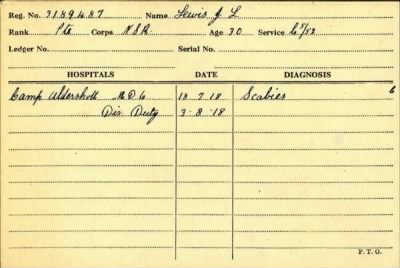 Reg. No. 3189487 Name Lewis J L
Rank Pte Corps N.S.R. Age 30 Service C 5/52
Ledger No. Serial No.
HOSPITALS DATE DIAGNOSIS
Camp Aldershott N.D.C 18 7 18 Scabies 6
Dis. Duty 3-8-18
P. T. O.